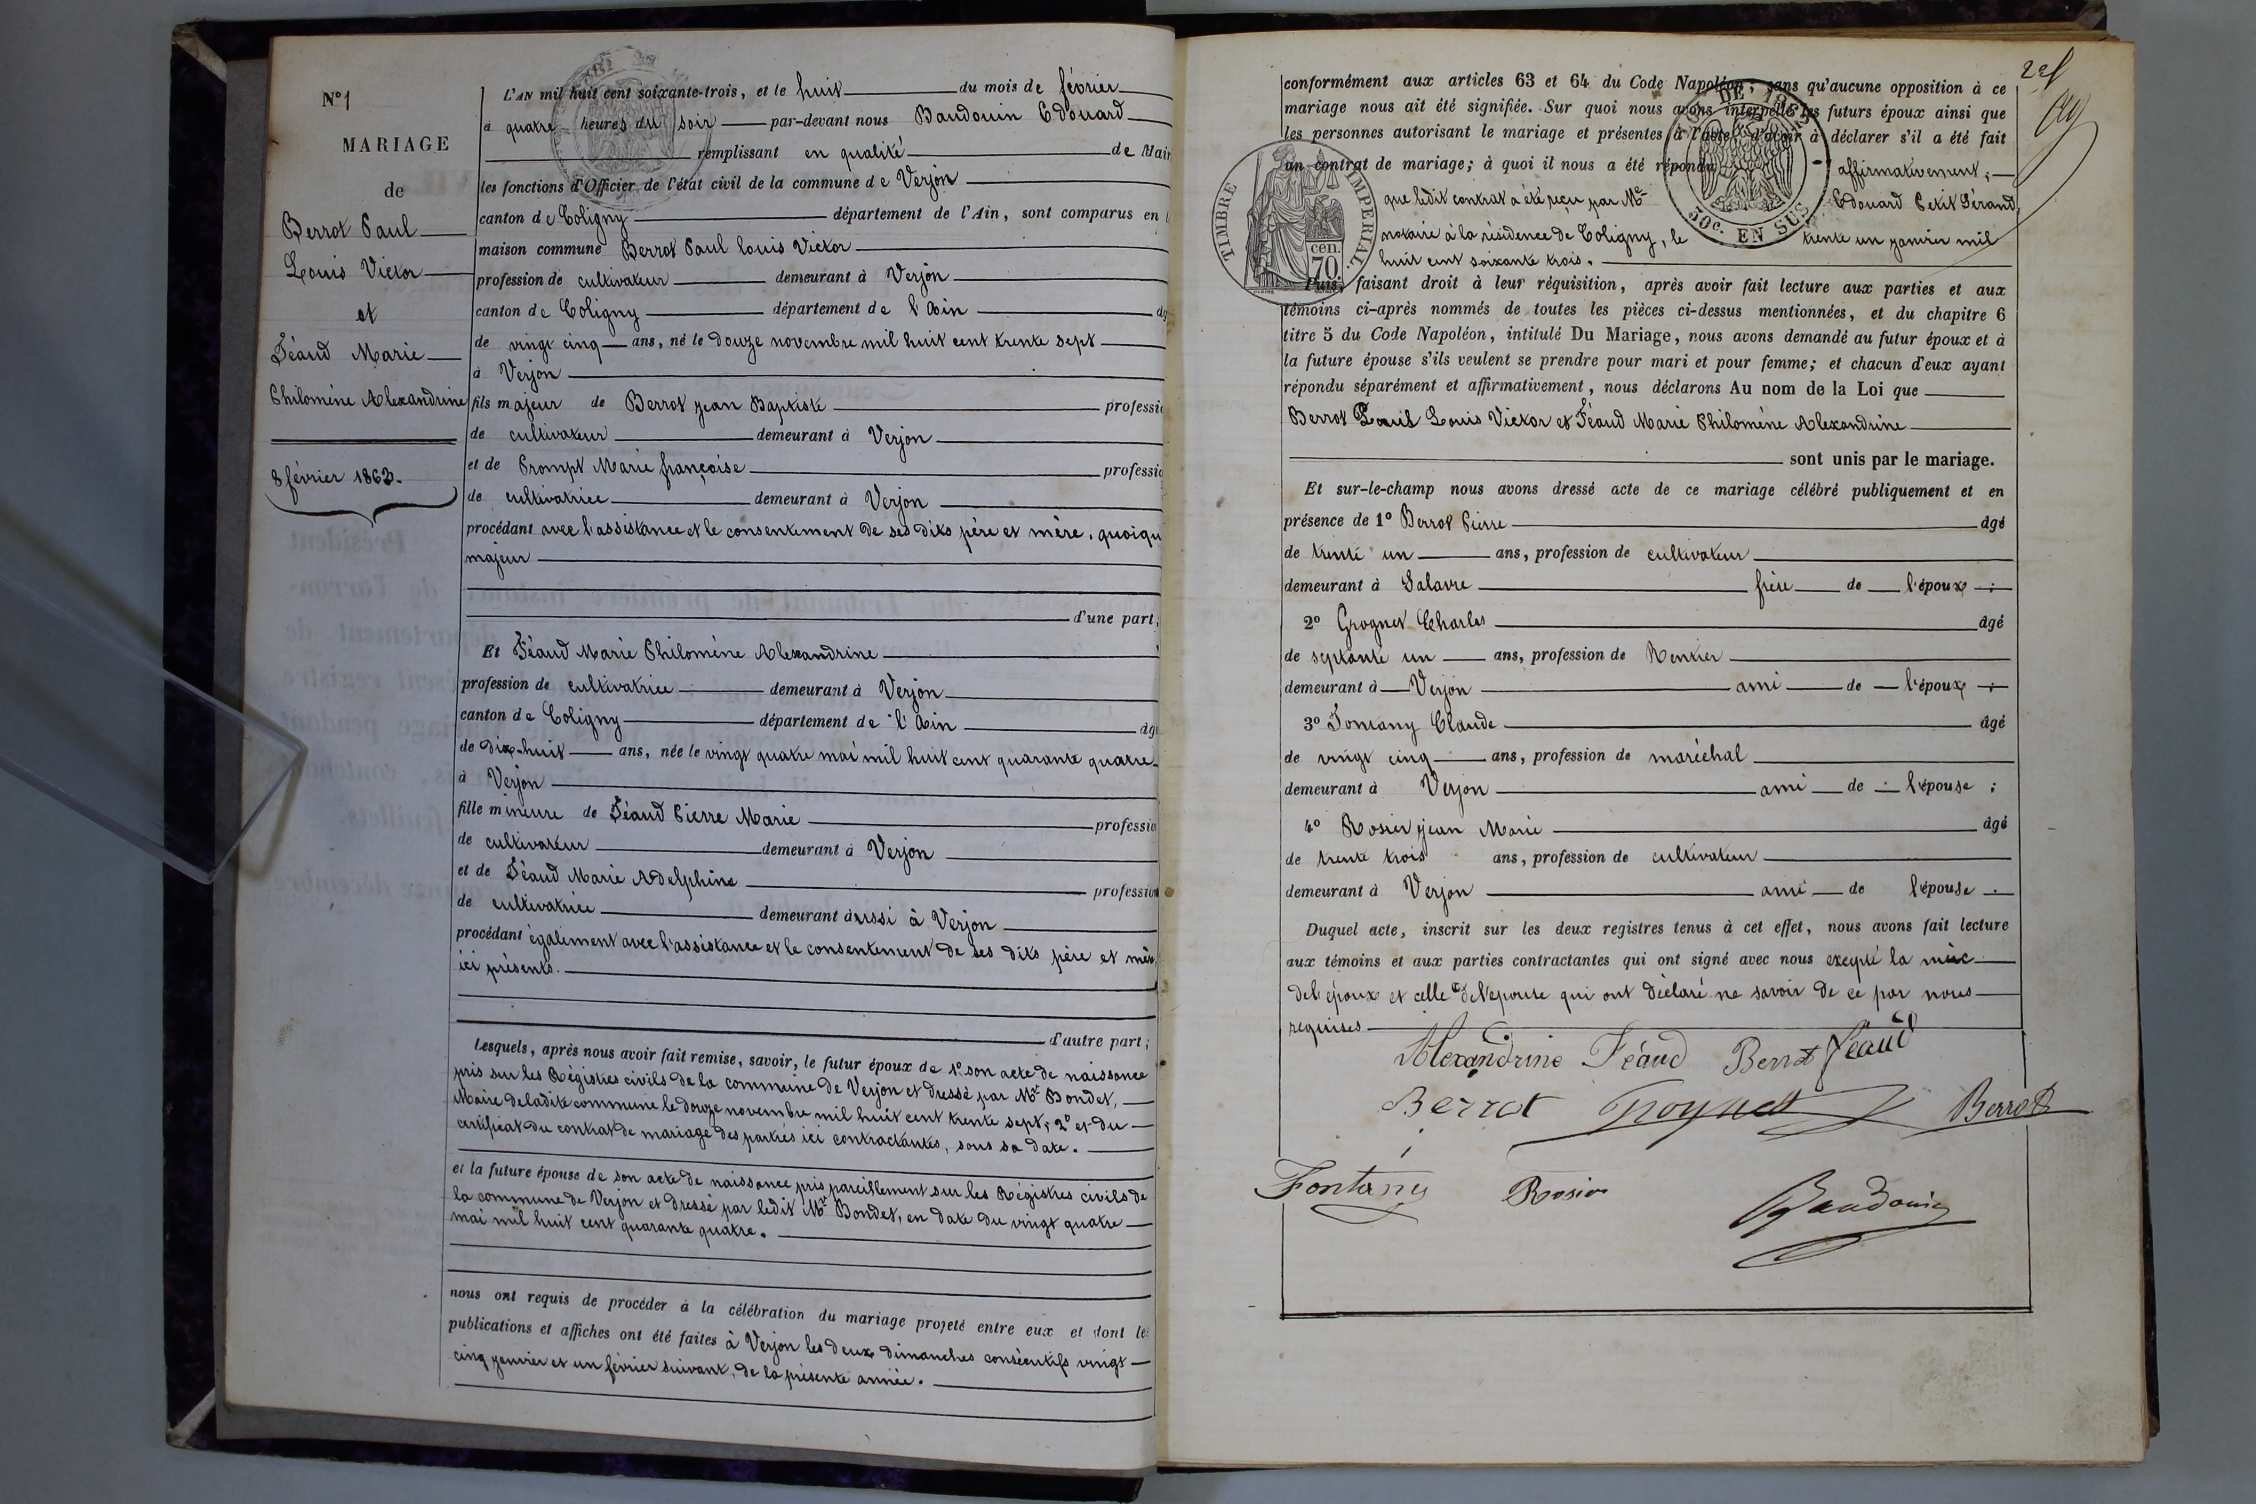 N° 1
MARIAGE
de
Berrot Paul
Louis Victor
et
Féaud Marie
Philomène Alexandrine
8 février 1863.
L'AN mil huit cent soixante-trois, et le huit du mois de février
à quatre heures du soir par-devant nous Baudouin Edouard
remplissant en qualité de Mair
les fonctions d'Officier de l'état civil de la commune de Verjon
canton de Coligny département de l'Ain, sont comparus en l
maison commune Berrot Paul Louis Victor
profession de cultivateur demeurant à Verjon
canton de Coligny département de l'Ain âg
de vingt cinq ans, né le douze novembre mil huit cent trente sept
à Verjon
fils majeur de Berrot Jean Baptiste professio
de cultivateur demeurant à Verjon
et de Prompt Marie françoise professio
de cultivatrice demeurant à Verjon
procédant avec l'assistance et le consentement de ses dits père et mère, quoiqu
majeur
d'une part;
Et Féaud Marie Philomène Alexandrine
profession de cultivatrice demeurant à Verjon
canton de Coligny département de l'Ain âg
de dix-huit ans, née le vingt quatre mai mil huit cent quarante quatre
à Verjon
fille mineure de Féaud Pierre Marie professio
de cultivateur demeurant à Verjon
et de Féaud Marie Adelphine profession
de cultivatrice demeurant aussi à Verjon
procédant également avec l'assistance et le consentement de ses dits père et mèr
ici présents.
d'autre part;
Lesquels, après nous avoir fait remise, savoir, le futur époux de 1° son acte de naissance
pris sur les Régistres civils de la commune de Verjon et dressé par Mr Bondet,
Maire de ladite commune le douze novembre mil huit cent trente sept; 2° et du
certificat du contrat de mariage des parties ici contractantes, sous sa date.
et la future épouse de son acte de naissance pris pareillement sur les Régistres civils de
la commune de Verjon et dressé par ledit Mr Bondet, en date du vingt quatre
mai mil huit cent quarante quatre.
nous ont requis de procéder à la célébration du mariage projeté entre eux et dont les
publications et affiches ont été faites à Verjon les deux dimanches consécutifs vingt
cinq janvier et un février suivant, de la présente année.
conformément aux articles 63 et 64 du Code Napoléon; sans qu'aucune opposition à ce
mariage nous ait été signifiée. Sur quoi nous avons interpellé les futurs époux ainsi que
les personnes autorisant le mariage et présentes à l'acte, d'avoir à déclarer s'il a été fait
un contrat de mariage; à quoi il nous a été répondu affirmativement;
que ledit contrat a été reçu par Me Edouard Petit Férand,
notaire à la résidence de Coligny, le trente un janvier mil
huit cent soixante trois.
TIMBRE IMPERIAL.
cen.
70
DE 1862
50c. EN SUS
Puis, faisant droit à leur réquisition, après avoir fait lecture aux parties et aux
témoins ci-après nommés de toutes les pièces ci-dessus mentionnées, et du chapitre 6
titre 5 du Code Napoléon, intitulé Du Mariage, nous avons demandé au futur époux et à
la future épouse s'ils veulent se prendre pour mari et pour femme; et chacun d'eux ayant
répondu séparément et affirmativement, nous déclarons Au nom de la Loi que
Berrot Paul Louis Victor et Féaud Marie Philomène Alexandrine
sont unis par le mariage.
Et sur-le-champ nous avons dressé acte de ce mariage célébré publiquement et en
présence de 1° Berrot Pierre âgé
de trente un ans, profession de cultivateur
demeurant à Salavre frère de l'époux ;
2° Grognet Charles âgé
de septante un ans, profession de Rentier
demeurant à Verjon ami de l'époux ;
3° Fontany Claude âgé
de vingt cinq ans, profession de maréchal
demeurant à Verjon ami de l'épouse ;
4° Rosier Jean Marie âgé
de trente trois ans, profession de cultivateur
demeurant à Verjon ami de l'épouse .
Duquel acte, inscrit sur les deux registres tenus à cet effet, nous avons fait lecture
aux témoins et aux parties contractantes qui ont signé avec nous excepté la mère
de l'époux et celle de l'épouse qui ont déclaré ne savoir de ce par nous
requises
Alexandrine Féaud Berrot Féaud
Berrot Grognet Berrot
Fontany Rosier Baudouin